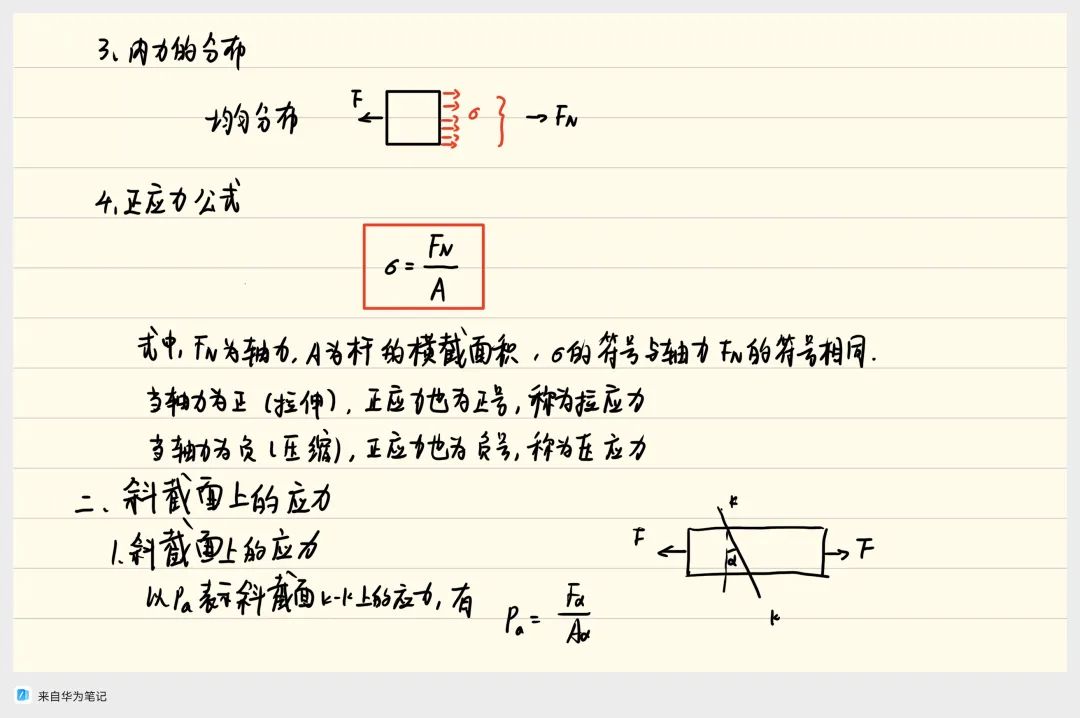 3、内力的分布
均匀分布 F σ → FN
4、正应力公式
σ = FN / A
式中, FN为轴力, A为杆的横截面积, σ的符号与轴力FN的符号相同.
当轴力为正(拉伸), 正应力也为正号, 称为拉应力
当轴力为负(压缩), 正应力也为负号, 称为压应力
二、斜截面上的应力
k
1.斜截面上的应力
F α F
以Pa表示斜截面k-k上的应力, 有
k
Pa = Fα / Aα
来自华为笔记